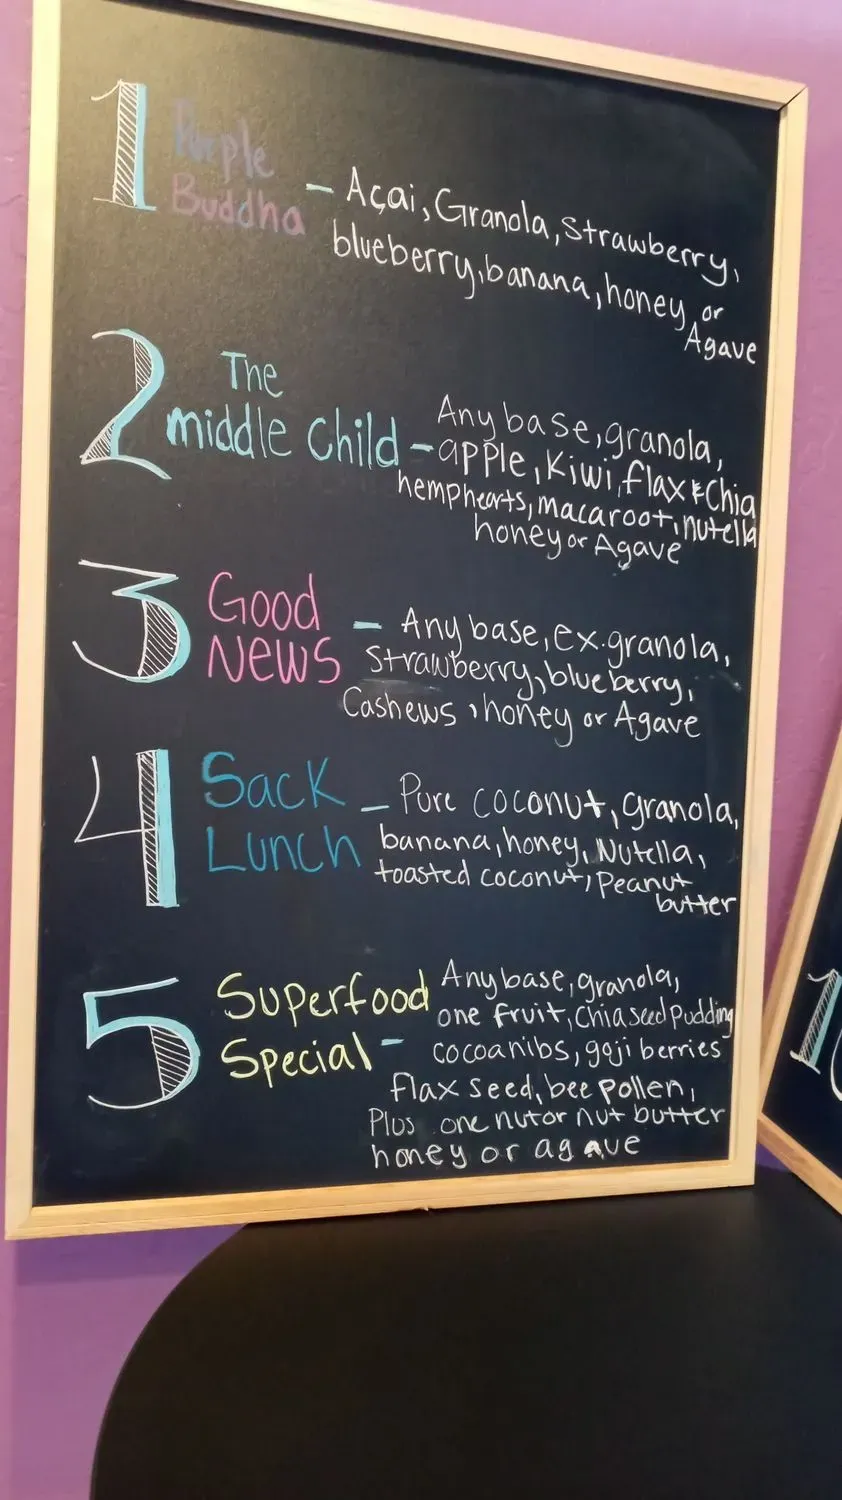 1 Purple
Buddha - Açai, Granola, Strawberry,
blueberry, banana, honey or
Agave
2 The
middle Child - Any base, granola,
apple, Kiwi, flax & Chia
hemphearts, macaroot, nutella
honey or Agave
3 Good
News - Any base, ex. granola,
Strawberry, blueberry,
Cashews, honey or Agave
4 Sack
Lunch - Pure coconut, granola,
banana, honey, Nutella,
toasted coconut, Peanut
butter
5 Superfood
Special - Any base, granola,
one fruit, Chia seed pudding
cocoanibs, goji berries
flax seed, bee pollen,
Plus one nut or nut butter
honey or agave
1